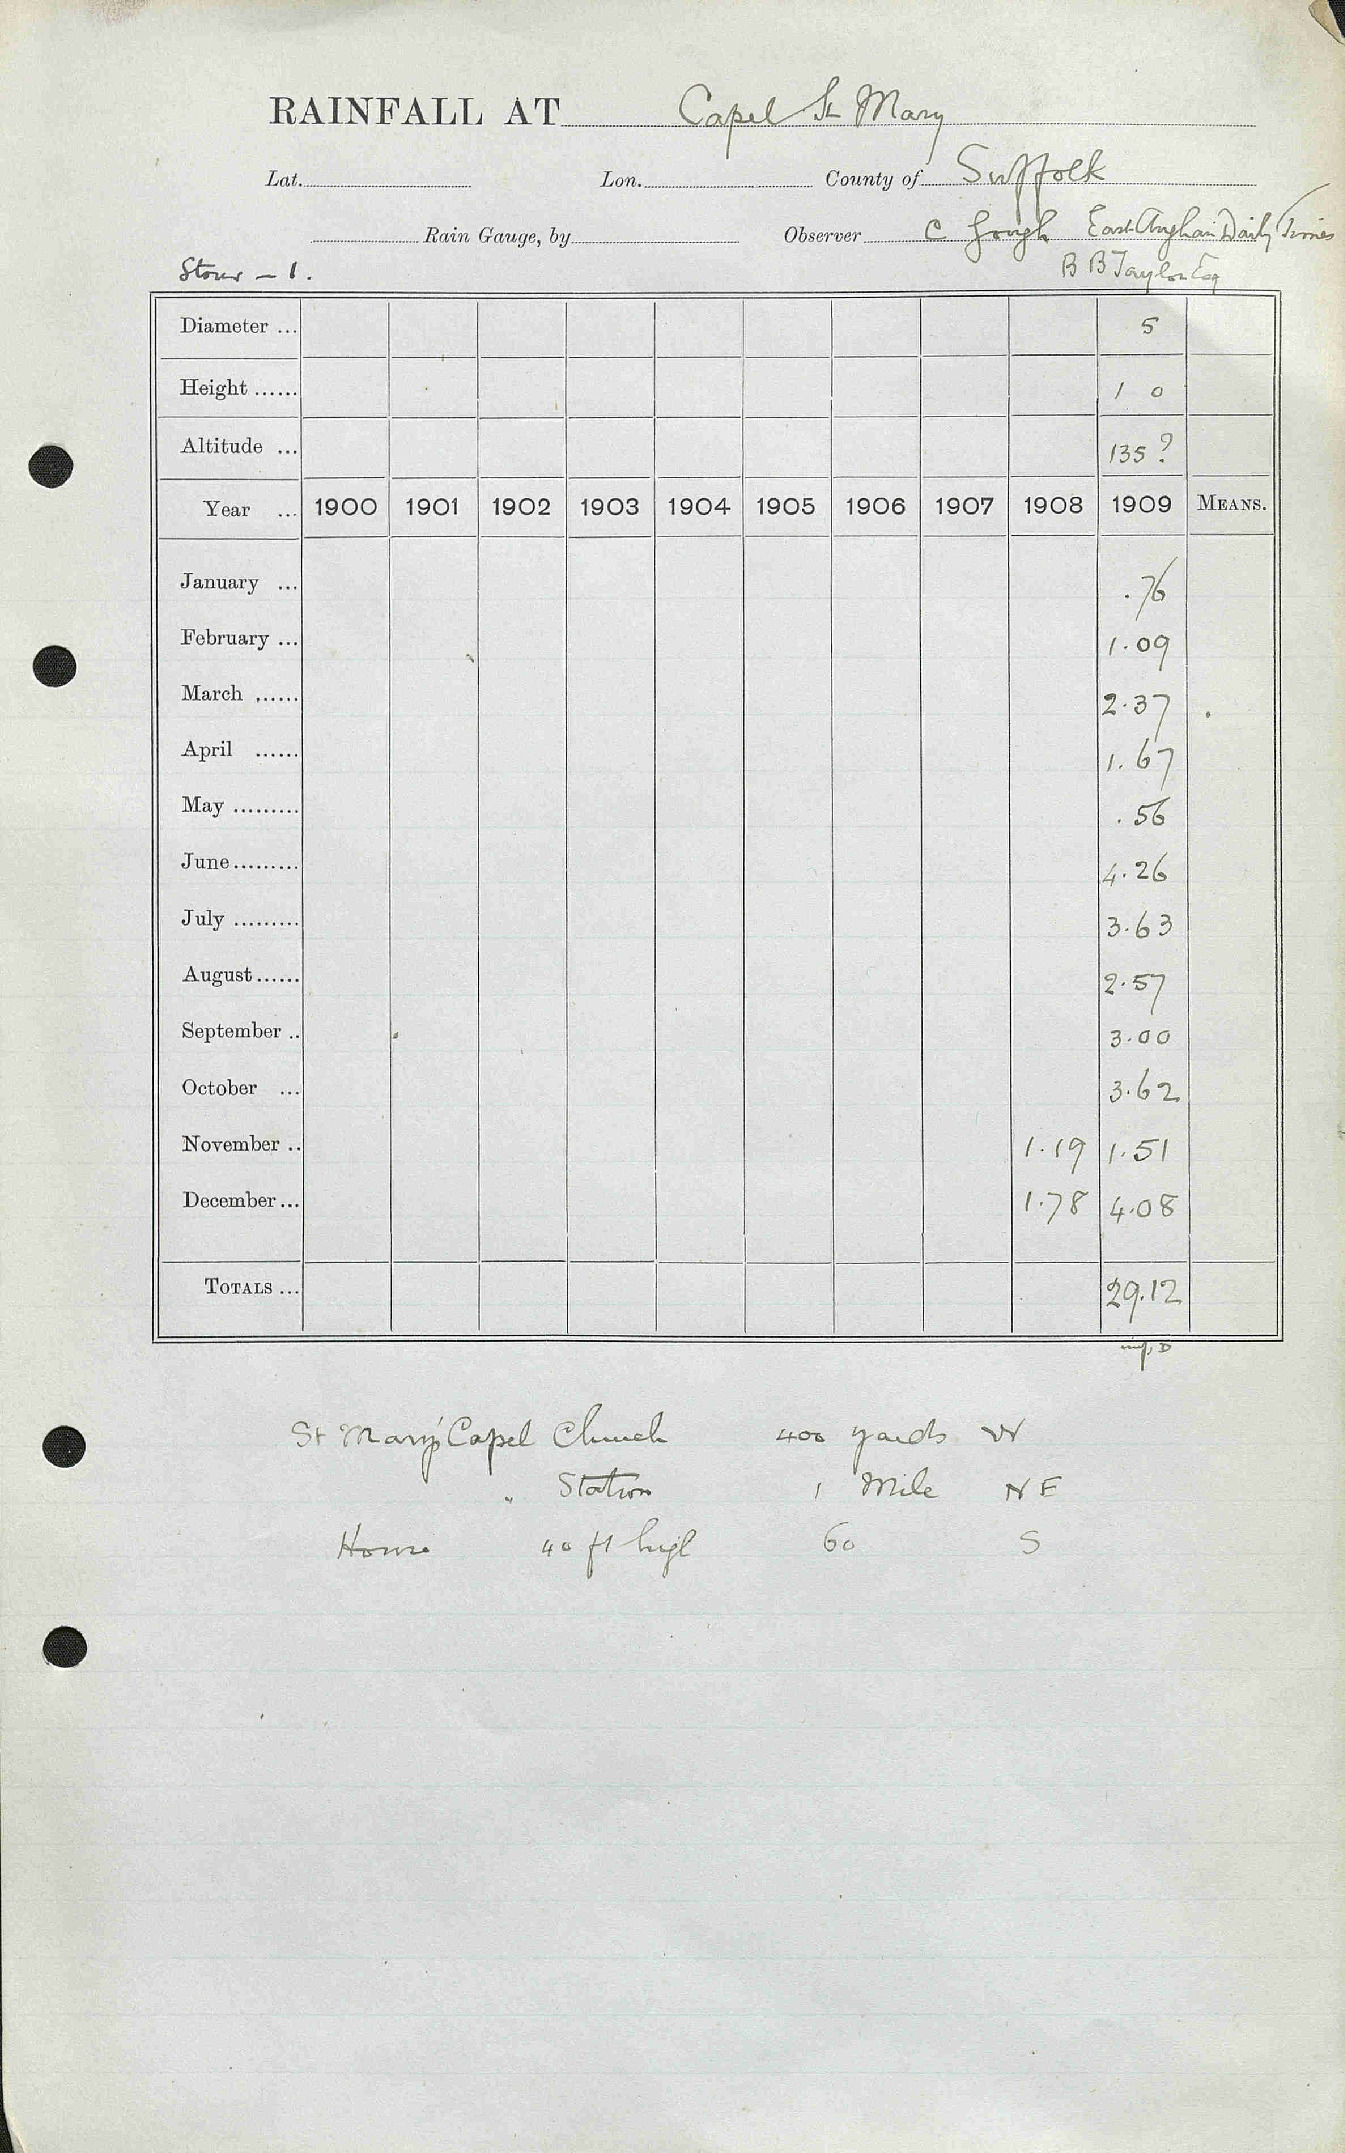 RAINFALL AT Capel St Mary
Lat. Lon. County of Suffolk
Rain Gauge, by Observer C Gough East Anglian Daily Times
Stour – 1. B B Taylor Esq
Diameter ... 5
Height ...... 1 0
Altitude ... 135 ?
Year ... 1900 1901 1902 1903 1904 1905 1906 1907 1908 1909 MEANS.
January ... .76
February ... 1.09
March ...... 2.37
April ...... 1.67
May ......... .56
June ......... 4.26
July ......... 3.63
August ...... 2.57
September .. 3.00
October ... 3.62
November .. 1.19 1.51
December ... 1.78 4.08
TOTALS ... 29.12
St Mary's Capel Church 400 yards W
" Station 1 Mile NE
House 40 ft high 60 S